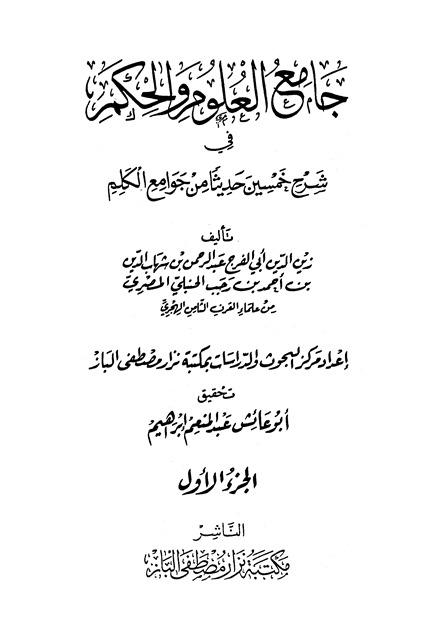 جامع العلوم والحكم
في
شرح خمسين حديثا من جوامع الكلم
تأليف
زين الدين أبي الفرج عبد الرحمن بن شهاب الدين
بن أحمد بن رجب الحنبلي المصري
من علماء القرن الثامن الهجري
إعداد مركز البحوث والدراسات بمكتبة نزار مصطفى الباز
تحقيق
أبو عائش عبد المنعم إبراهيم
الجزء الأول
الناشر
مكتبة نزار مصطفى الباز